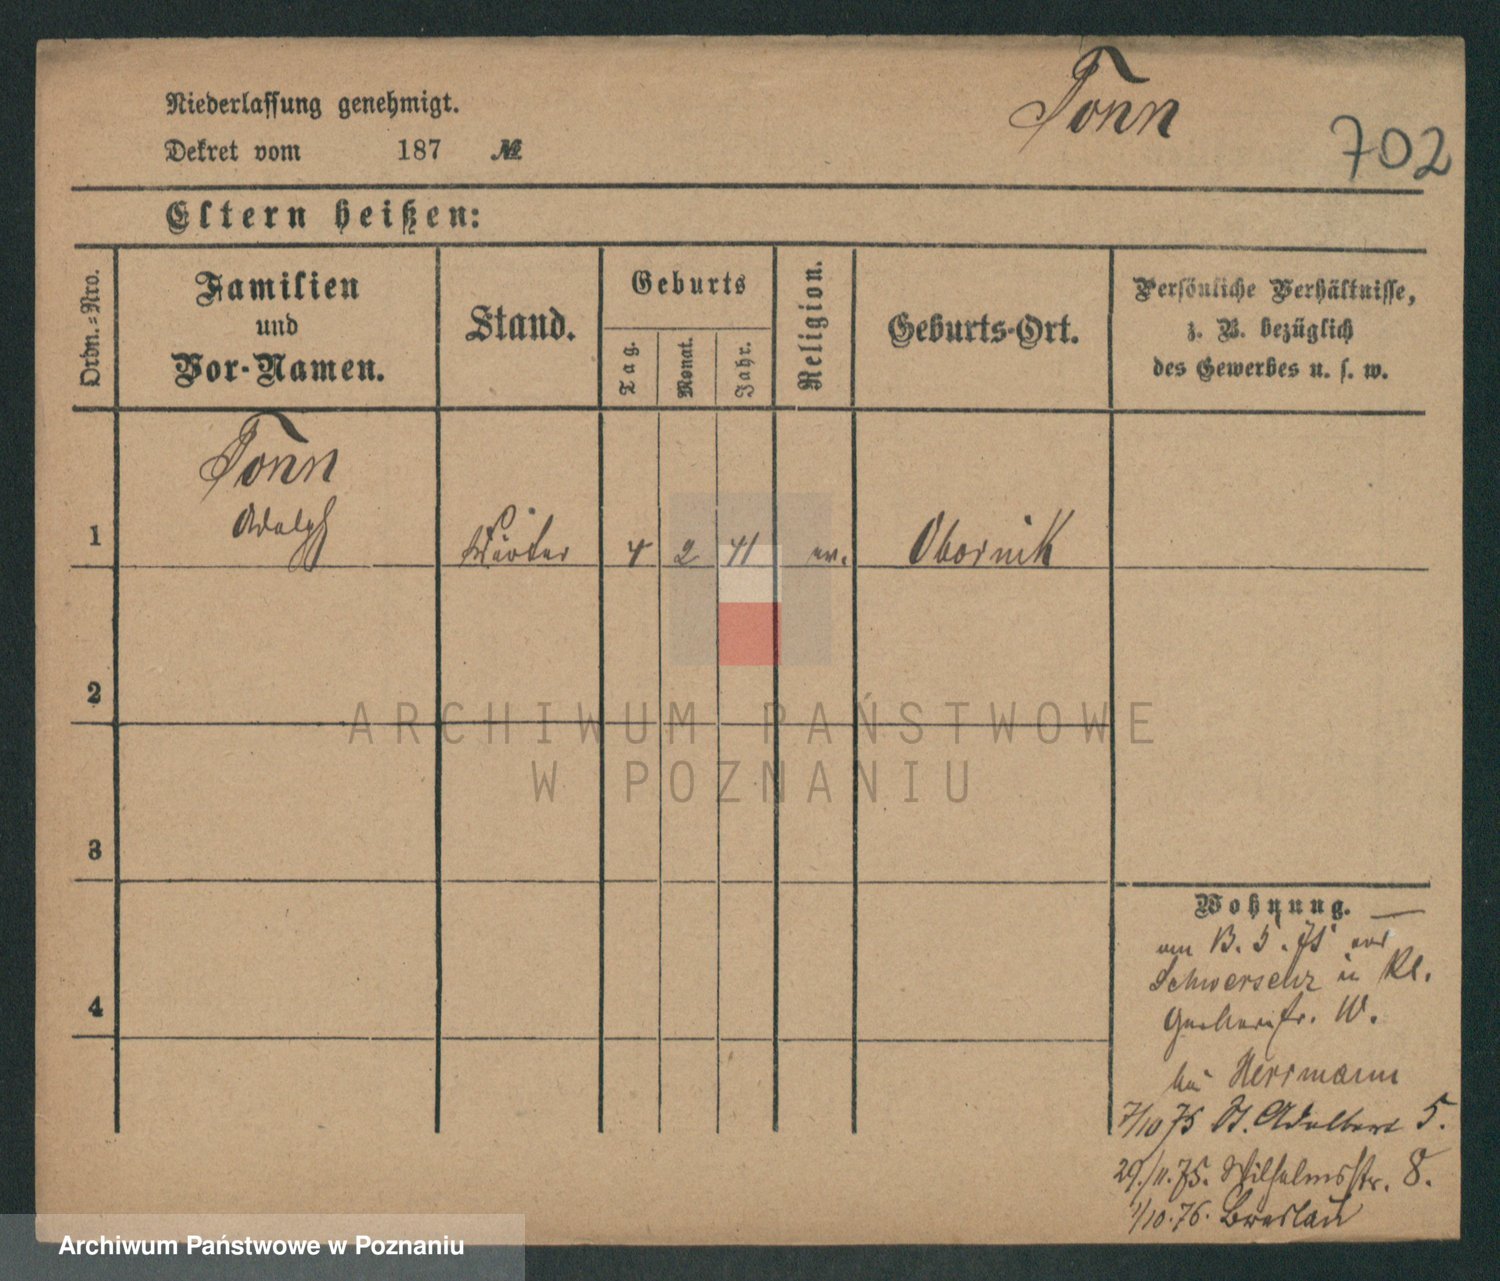 Tonn
702
Niederlassung genehmigt.
Dekret vom 187 №
Eltern heißen:
Ordn.-Nro.
Familien
und
Vor-Namen.
Stand.
Geburts
Tag.
Monat.
Jahr.
Religion.
Geburts-Ort.
Persönliche Verhältnisse,
z. B. bezüglich
des Gewerbes u. s. w.
1
Tonn
Adolph
4 2 41 ev. Obornik
2
3
4
Wohnung.
am 13. 5. 75
Schwersenz in Kl.
W.
bei Herrmann
7/10 75 St. Adalbert 5.
29./11. 75. Wilhelmsstr. 8.
1/10. 76. Breslau
ARCHIWUM PAŃSTWOWE
W POZNANIU
Archiwum Państwowe w Poznaniu